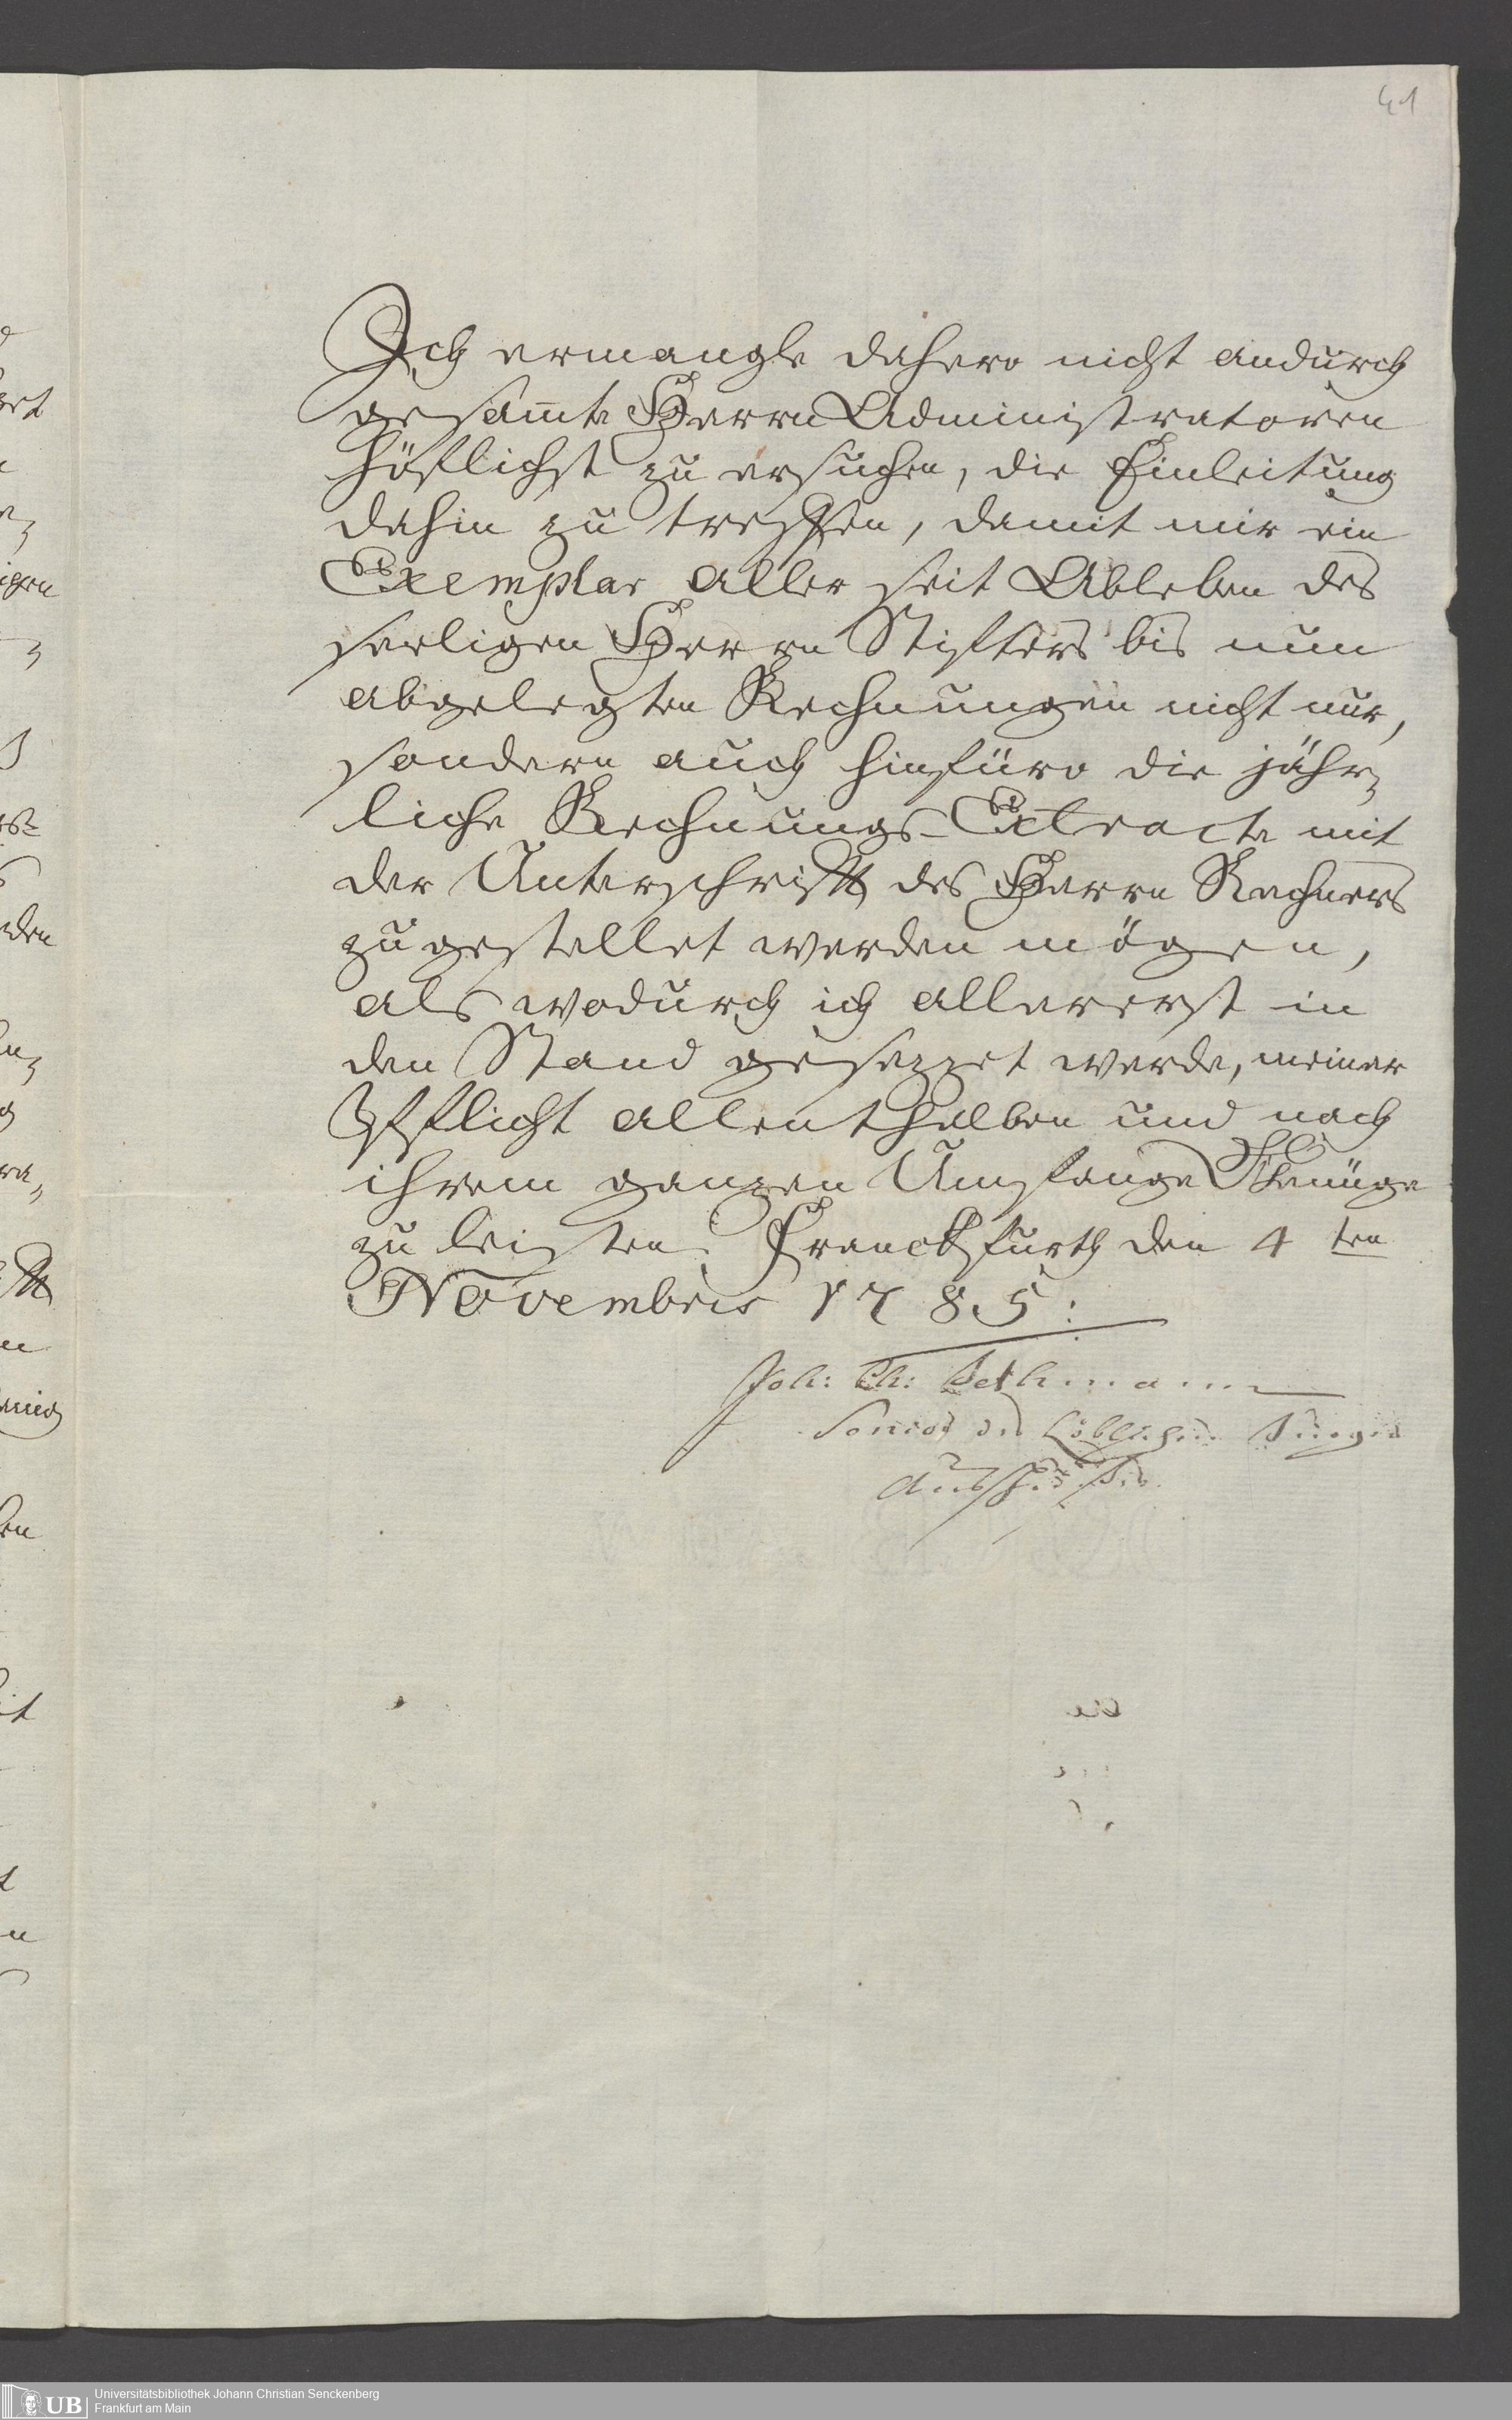 41
Ich ermangle dahero nicht andurch
gesam̅te Herrn Administratoren
höflichst zu ersuchen, die Einleitung
dahin zu treffen, damit mir ein
Exemplar aller seit Ableben des
seeligen Herrn Stifters bis nun
abgelegten Rechnungen nicht nur,
sondern auch hinfüro die jähr⸗
liche Rechnungs-Extracte mit
der Unterschrifft des Herrn Rechners
zugestellet werden mögen,
als wodurch ich allererst in
den Stand gesezzet werde, meiner
Pflicht allenthalben und nach
ihrem ganzen Umfange Genüge
zu leisten. Franckfurth den 4 ten
Novembris 1785:
Joh: Ch: Bethmann
Senior des Löblichen Burger
Ausschusses
Universitätsbibliothek Johann Christian Senckenberg
Frankfurt am Main
UB